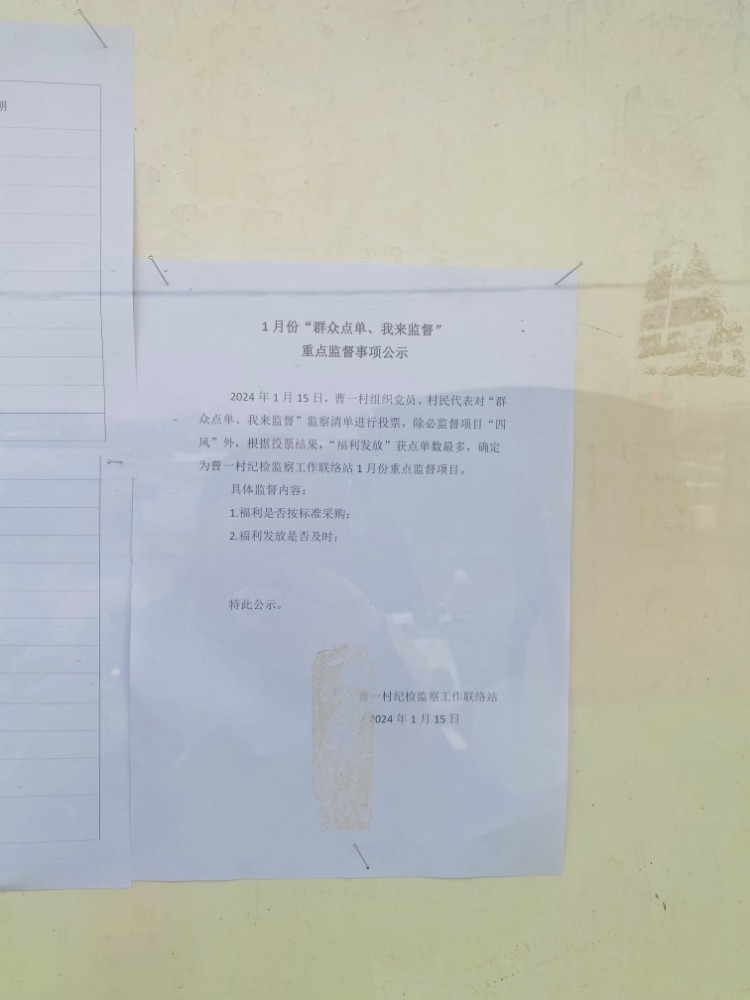 期
1月份“群众点单、我来监督”
重点监督事项公示
2024年1月15日，曹一村组织党员、村民代表对“群
众点单、我来监督”监察清单进行投票，除必监督项目“四
风”外，根据投票结果，“福利发放”获点单数最多，确定
为曹一村纪检监察工作联络站1月份重点监督项目。
具体监督内容：
1.福利是否按标准采购；
2.福利发放是否及时；
特此公示。
曹一村纪检监察工作联络站
2024年1月15日